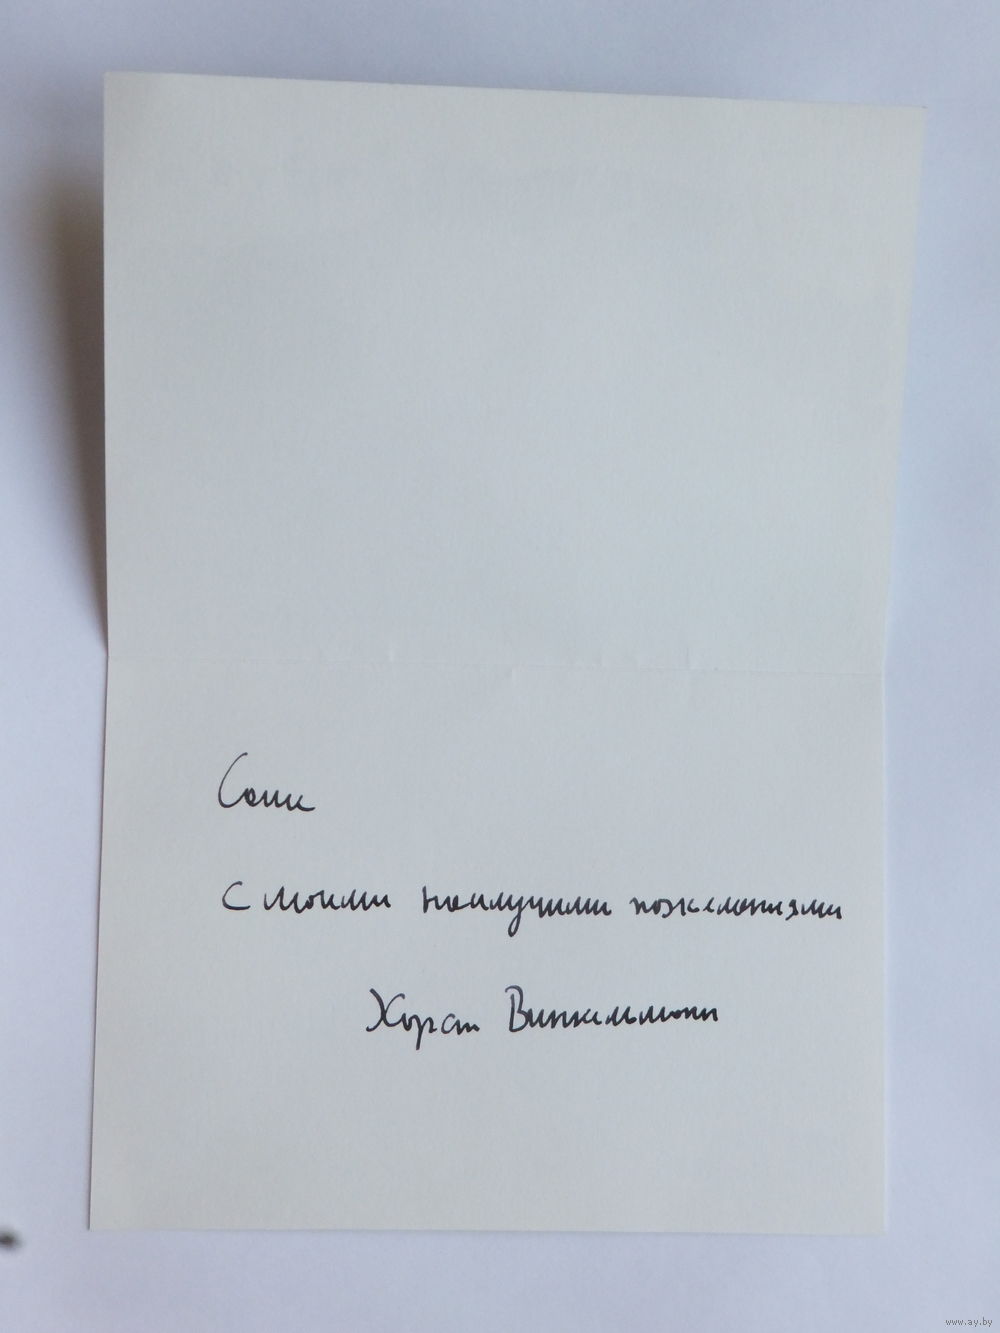 Саше
с моими наилучшими пожеланиями
Хорст Винкельманн
www.ay.by